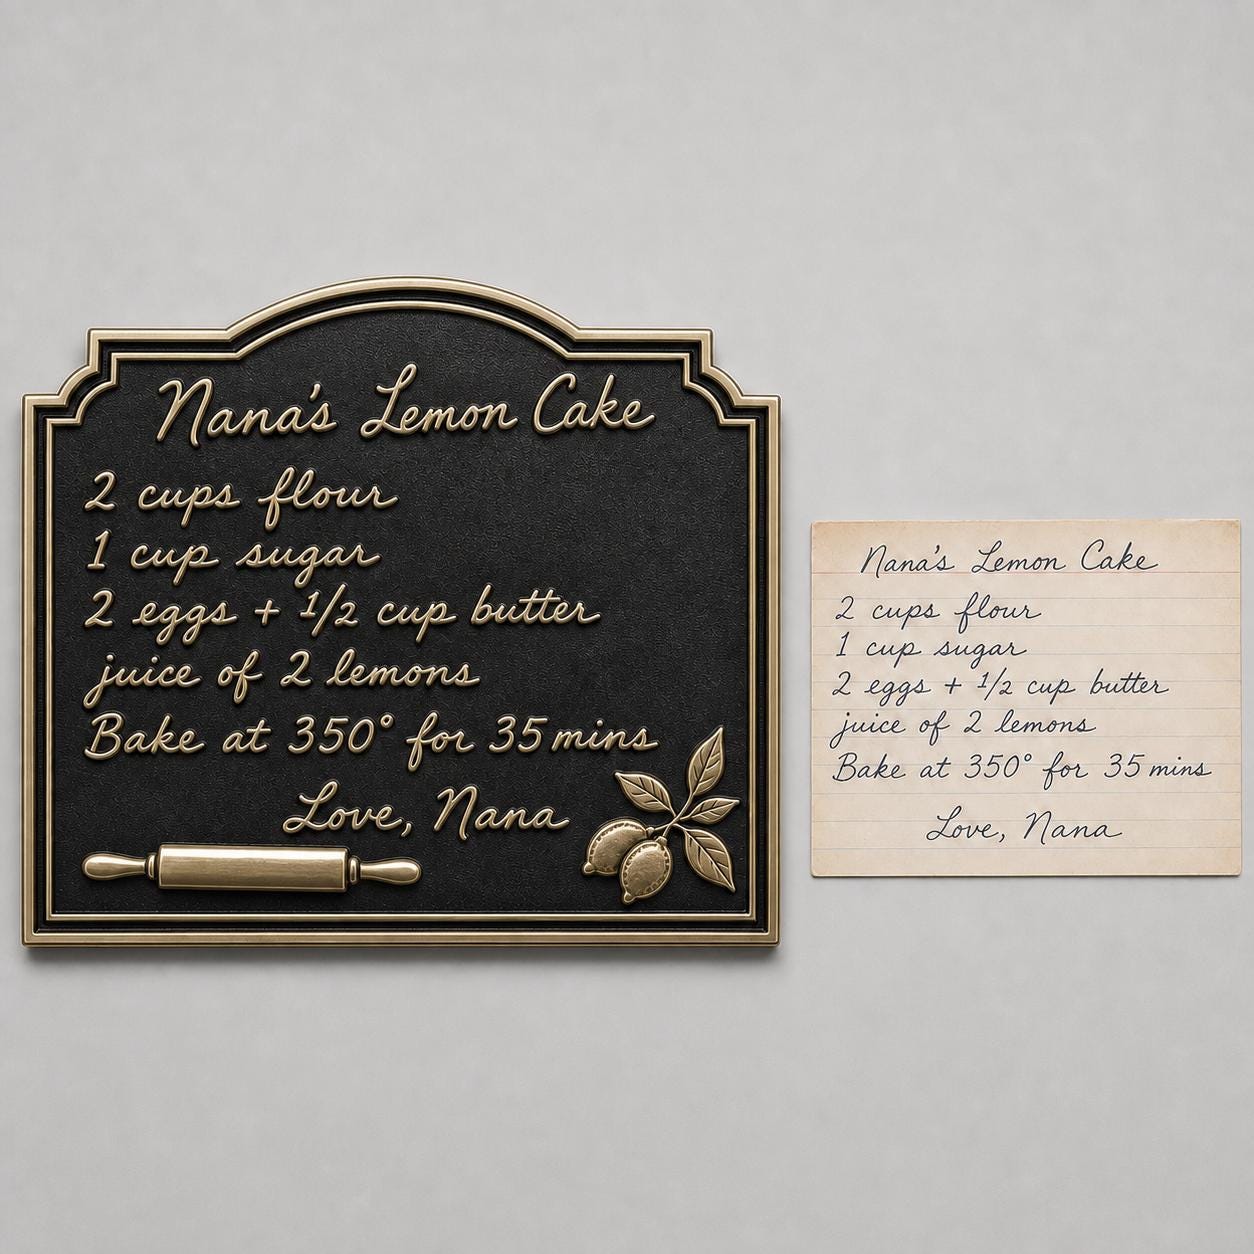 Nana's Lemon Cake
2 cups flour
1 cup sugar
2 eggs + 1/2 cup butter
juice of 2 lemons
Bake at 350° for 35 mins
Love, Nana
Nana's Lemon Cake
2 cups flour
1 cup sugar
2 eggs + 1/2 cup butter
juice of 2 lemons
Bake at 350° for 35 mins
Love, Nana